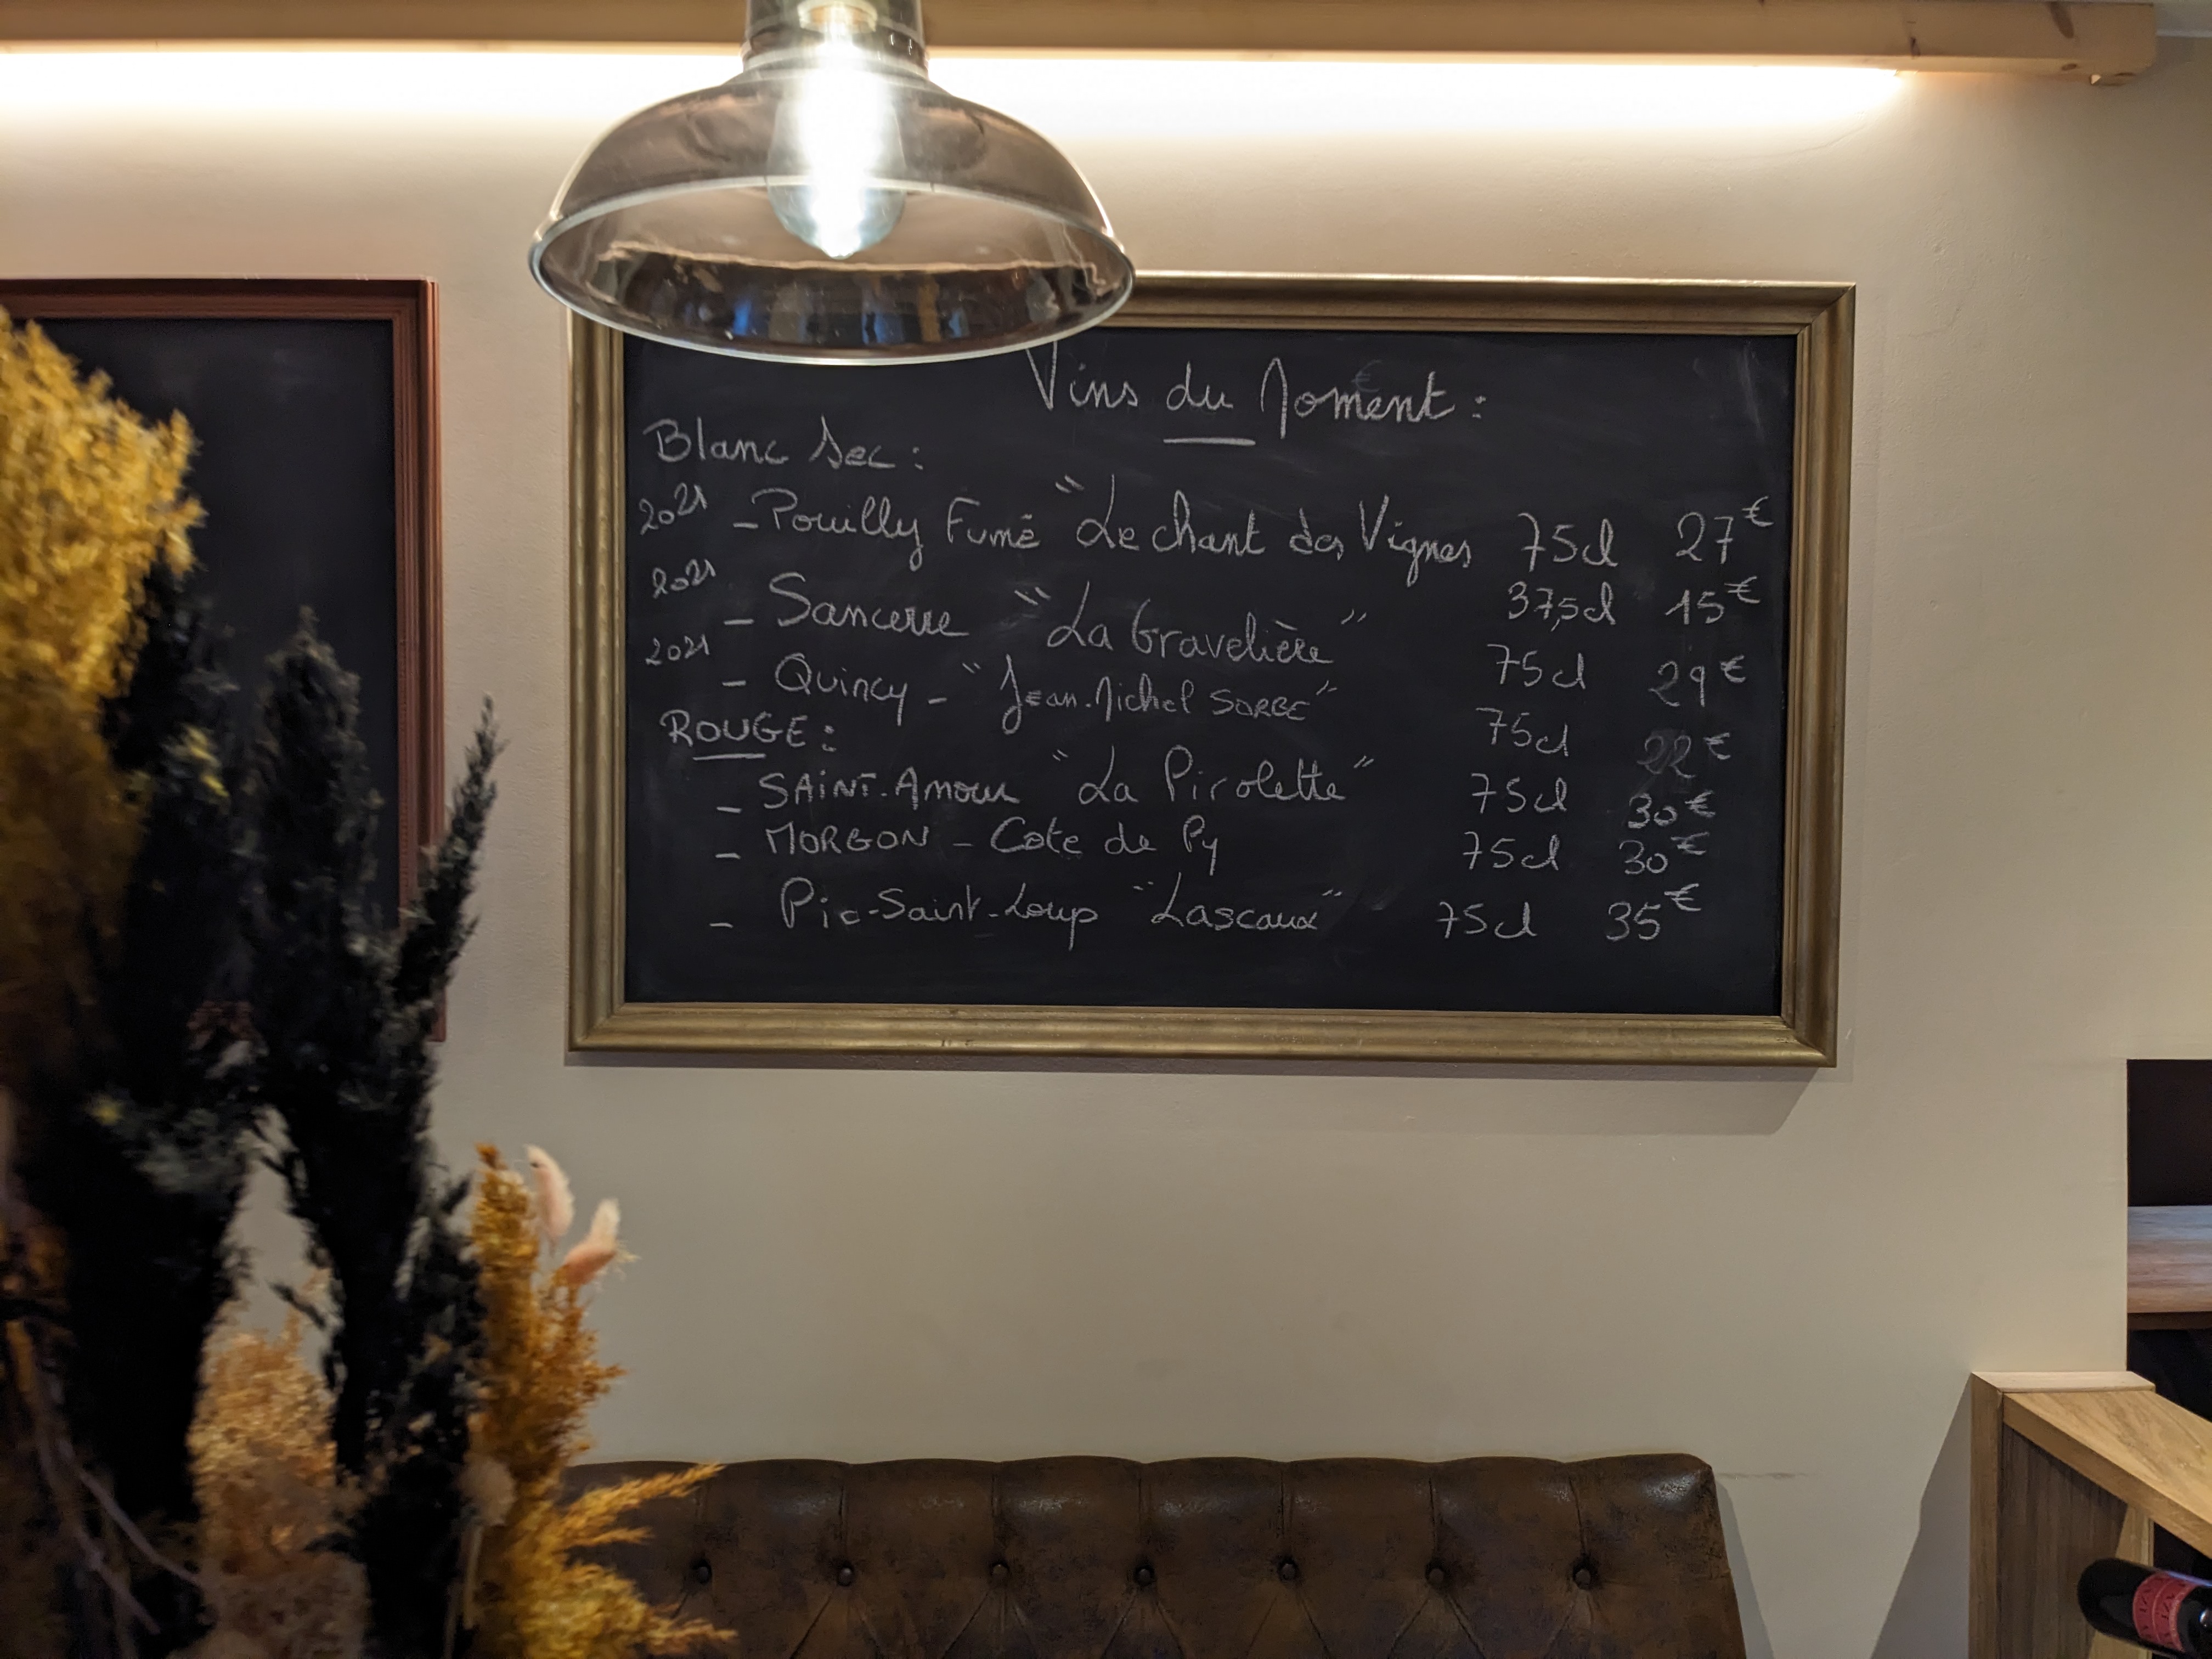 Vins du Moment :
Blanc Sec :
2021 - Pouilly Fumé "Le chant des Vignes 75cl 27€
37,5cl 15€
2021 - Sancerre "La Gravelière" 75cl 29€
2021 - Quincy - "Jean-Michel SORBE" 75cl 22€
ROUGE :
- SAINT-Amour "La Pirolette" 75cl 30€
- MORGON - Cote de Py 75cl 30€
- Pic-Saint-Loup "Lascaux" 75cl 35€